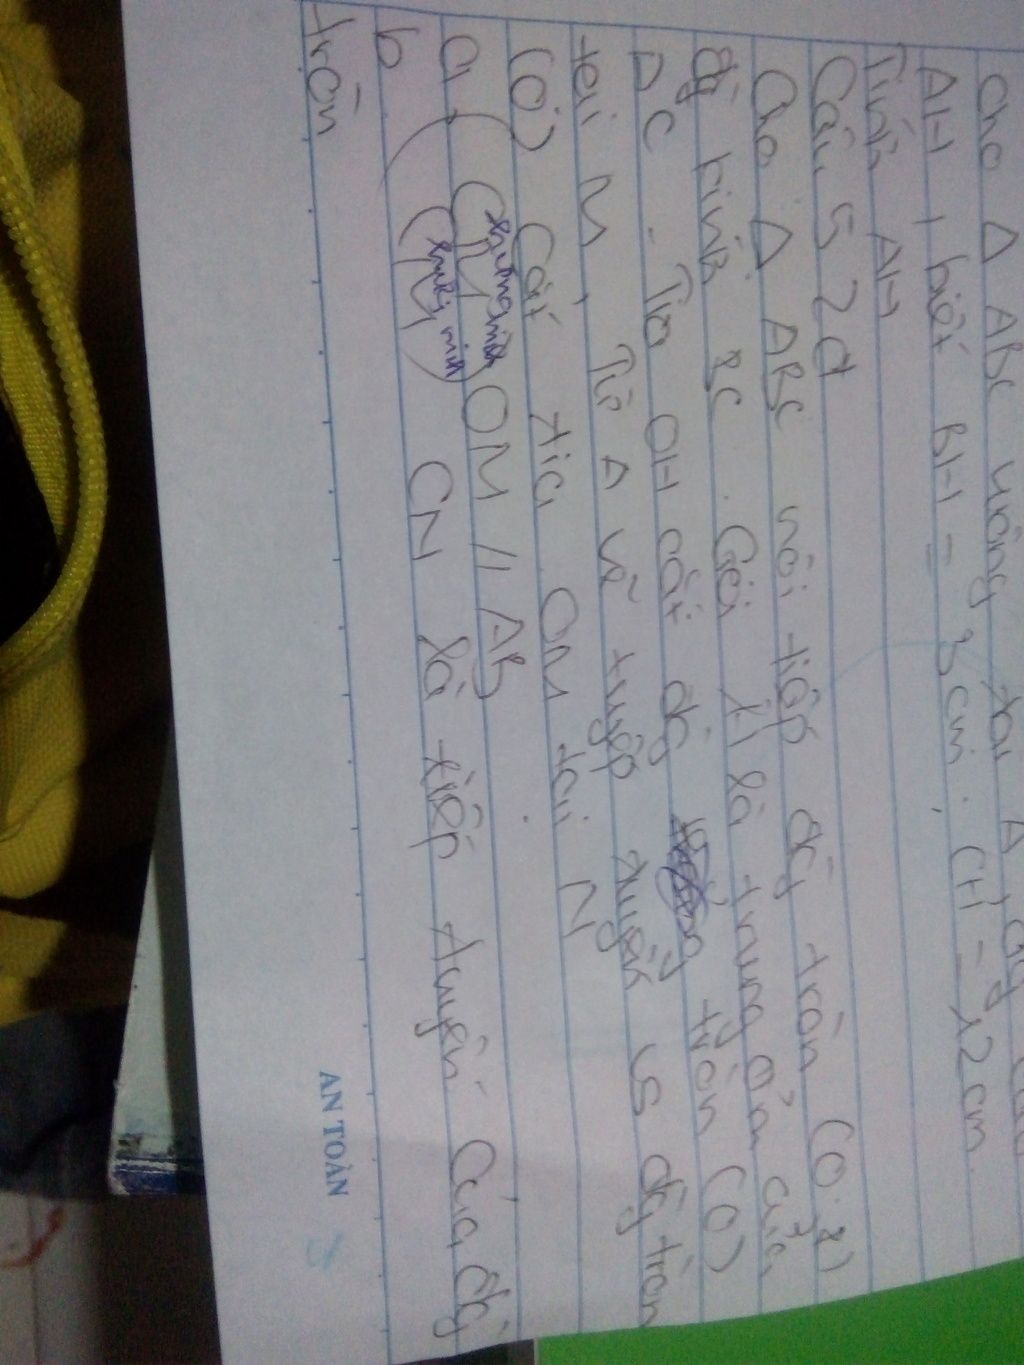 Cho Δ ABC vuông tại A, đg cao
AH, biết BH = 3cm. CH = 12cm.
Tính AH
Câu 5 2đ
Cho Δ ABC nội tiếp đg tròn (O;R)
đg kính BC. Gọi H là trung điểm của
AC. Tia OH cắt đg tròn (O)
tại M, Từ A vẽ tuyếp tuyến vs đg tròn
(O) cắt tia OM tại N
a, (chứng minh) OM // AB
b (chứng minh) CN là tiếp tuyến của đg
tròn
AN TOÀN